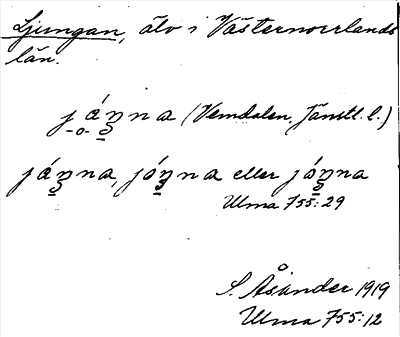 Ljungan, älv i Västernorrlands
län.
jáŋna (Vemdalen, Jämtl. l.)
jáŋna, jóŋna eller jóŋna
Ulma 755:29
S. Åsander 1919
Ulma 755:12